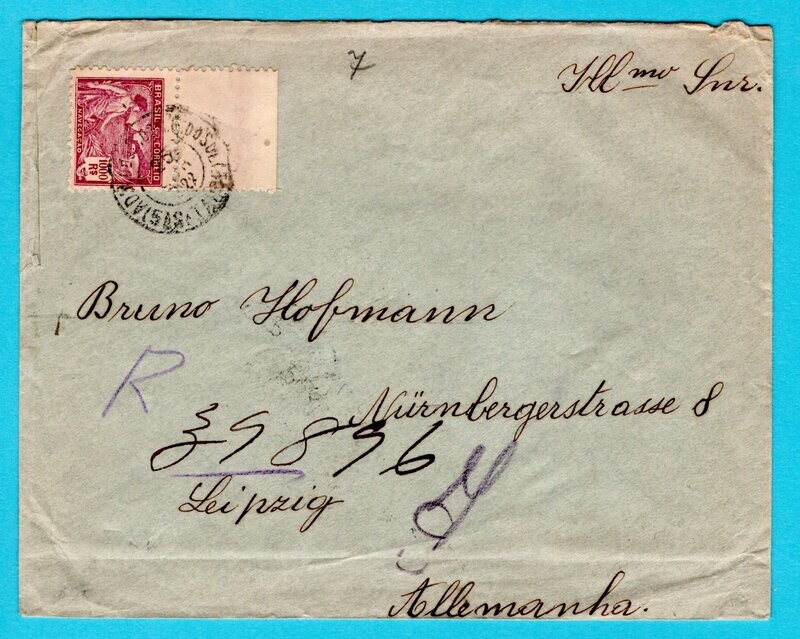 7
Illmo Snr.
BRASIL CORREIO
NAVEGAÇÃO
1000 RS
Bruno Hofmann
R
Nürnbergerstrasse 8
39896
Leipzig
Allemanha.